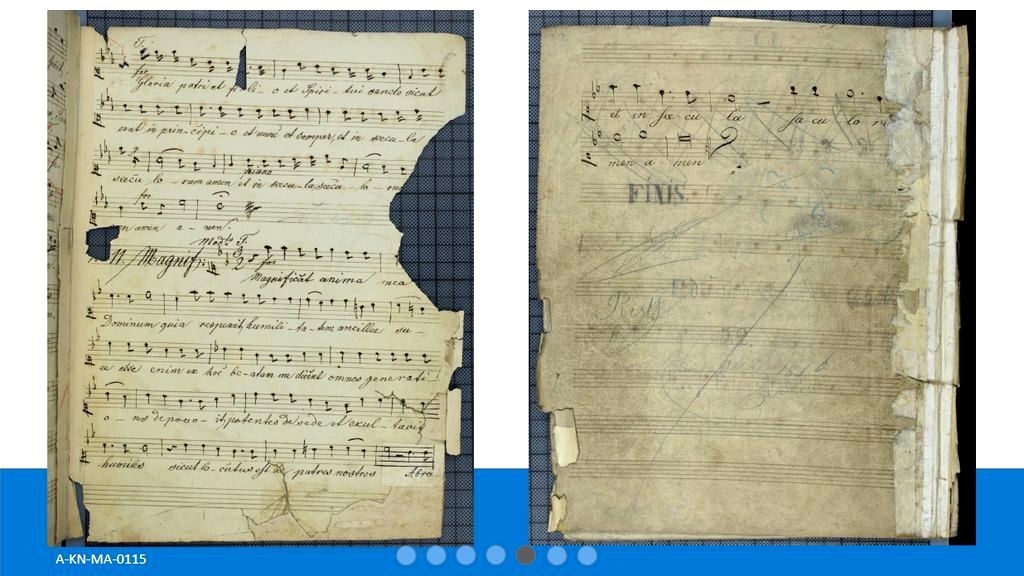 T.
for
Gloria patri et fi-li-o et Spiri-tui sancto sicut
erat in prin-cipi-o et nunc et semper, et in sæcu-la
piano
sæcu-lo-rum amen et in sæcu-la sæcu-lo-ru
for
amen a-men.
Mod:to T.
11. Magnif:
for
Magnificat anima mea
Dominum quia respexit humili-ta-tem ancillæ su-
æ ecce enim ex hoc be-atam me dicent omnes generati
o-nes deposu-it potentes de sede et exul-tavit
humiles sicut lo-cutus est ad patres nostros Abra
et in sæ-cu la sæ-cu lo ru
men a men
FINIS.
A-KN-MA-0115